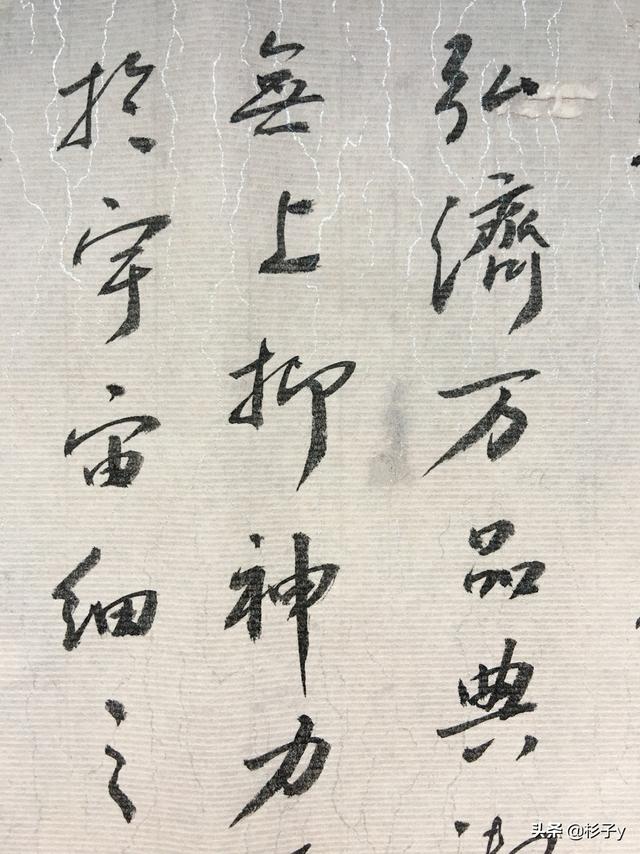 弘濟万品典
無上抑神力
於宇宙細之
头条 @杉子y